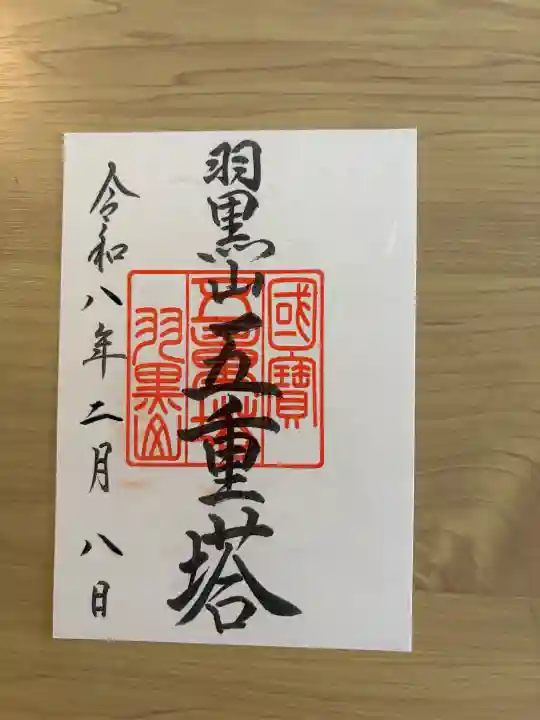 國寶
五重塔
羽黒山
羽黒山五重塔
令和八年二月八日